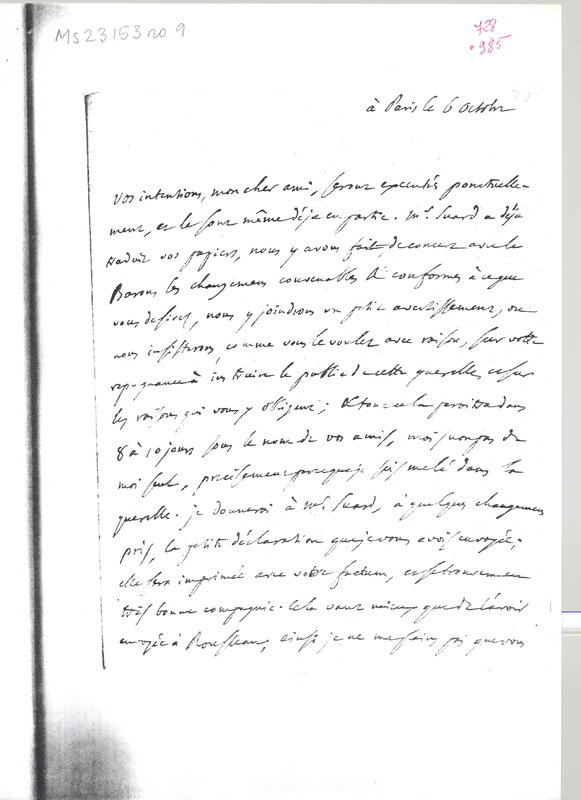 Ms 23153 no 9
728
985
à Paris le 6 octobre
Vos intentions, mon cher ami, seront executées ponctuelle-
ment, et le sont même déja en partie. Mr. Suard a déja
traduit vos papiers, nous y avons fait, de concert avec le
Baron les changemens convenables & conformes à ce que
vous desirez, nous y joindrons un petit avertissement, ou
nous insisterons, comme vous le voulez avec raison, sur votre
repugnance à instruire le public de cette querelle, et sur
les raisons qui vous y obligent; & tout cela paroitra dans
8 à 10 jours sous le nom de vos amis, mais non pas de
moi seul, précisement parceque je suis melé dans la
querelle. je donnerai à Mr. Suard, à quelques changemens
près, la petite déclaration que je vous avois envoyée;
elle sera imprimée avec votre factum, et se trouvera en
très bonne compagnie. Cela vaut mieux que de l'avoir
envoyée à Rousseau, ainsi je ne me plains pas que vous